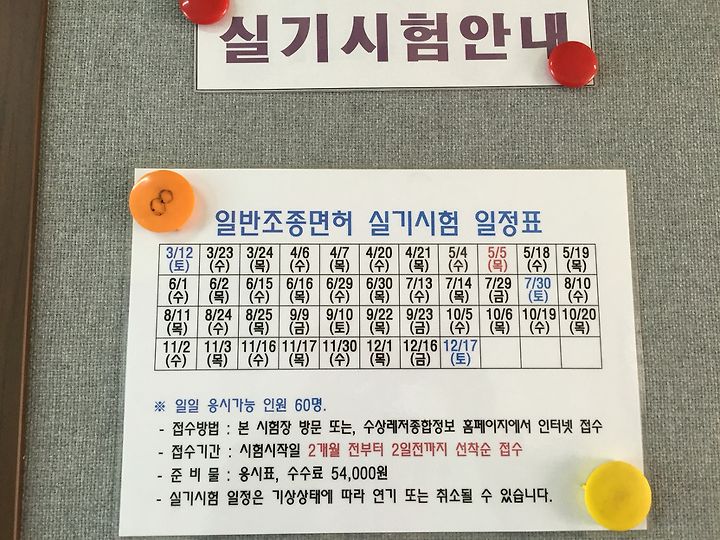 실기시험안내
8
일반조종면허 실기시험 일정표
3/12 3/23 3/24 4/6 4/7 4/20 4/21 5/4 5/5 5/18 5/19
(토) (수) (목) (수) (목) (수) (목) (수) (목) (수) (목)
6/1 6/2 6/15 6/16 6/29 6/30 7/13 7/14 7/29 7/30 8/10
(수) (목) (수) (목) (수) (목) (수) (목) (금) (토) (수)
8/11 8/24 8/25 9/9 9/10 9/22 9/23 10/5 10/6 10/19 10/20
(목) (수) (목) (금) (토) (목) (금) (수) (목) (수) (목)
11/2 11/3 11/16 11/17 11/30 12/1 12/16 12/17
(수) (목) (수) (목) (수) (목) (금) (토)
※ 일일 응시가능 인원 60명.
- 접수방법 : 본 시험장 방문 또는, 수상레저종합정보 홈페이지에서 인터넷 접수
- 접수기간 : 시험시작일 2개월 전부터 2일전까지 선착순 접수
- 준 비 물 : 응시표, 수수료 54,000원
- 실기시험 일정은 기상상태에 따라 연기 또는 취소될 수 있습니다.